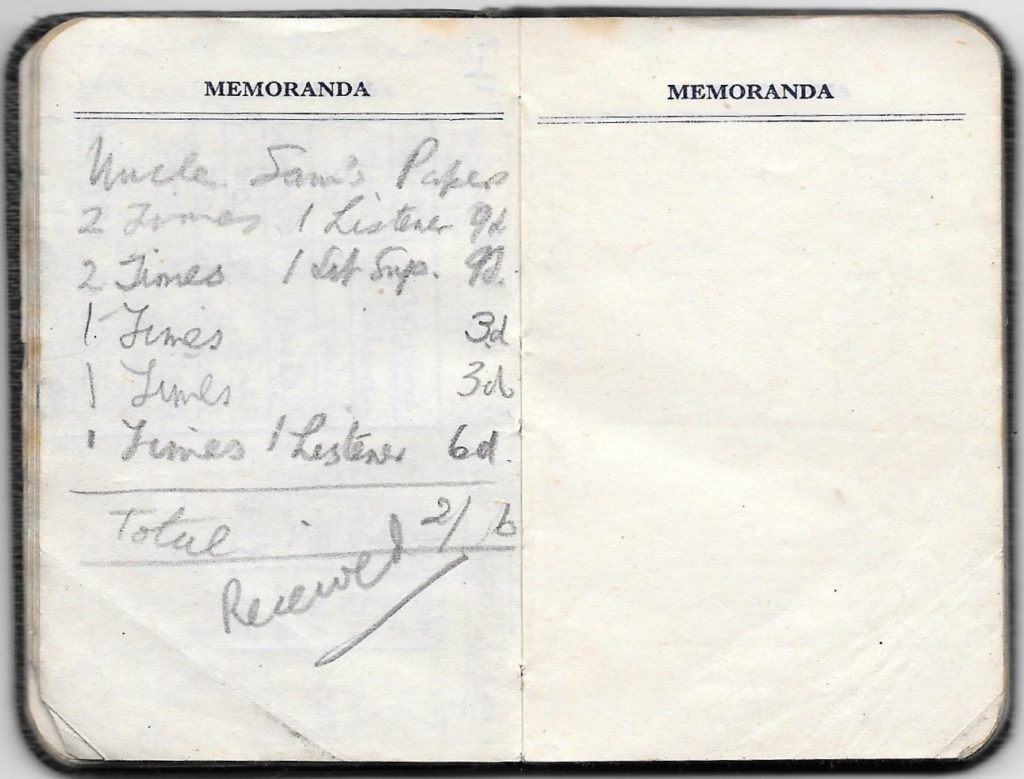 MEMORANDA
Uncle Sam's Papers
2 Times 1 Listener 9d
2 Times 1 Lit Sup. 9d.
1 Times 3d
1 Times 3d
1 Times 1 Listener 6d.
Total 2/6
Received
MEMORANDA